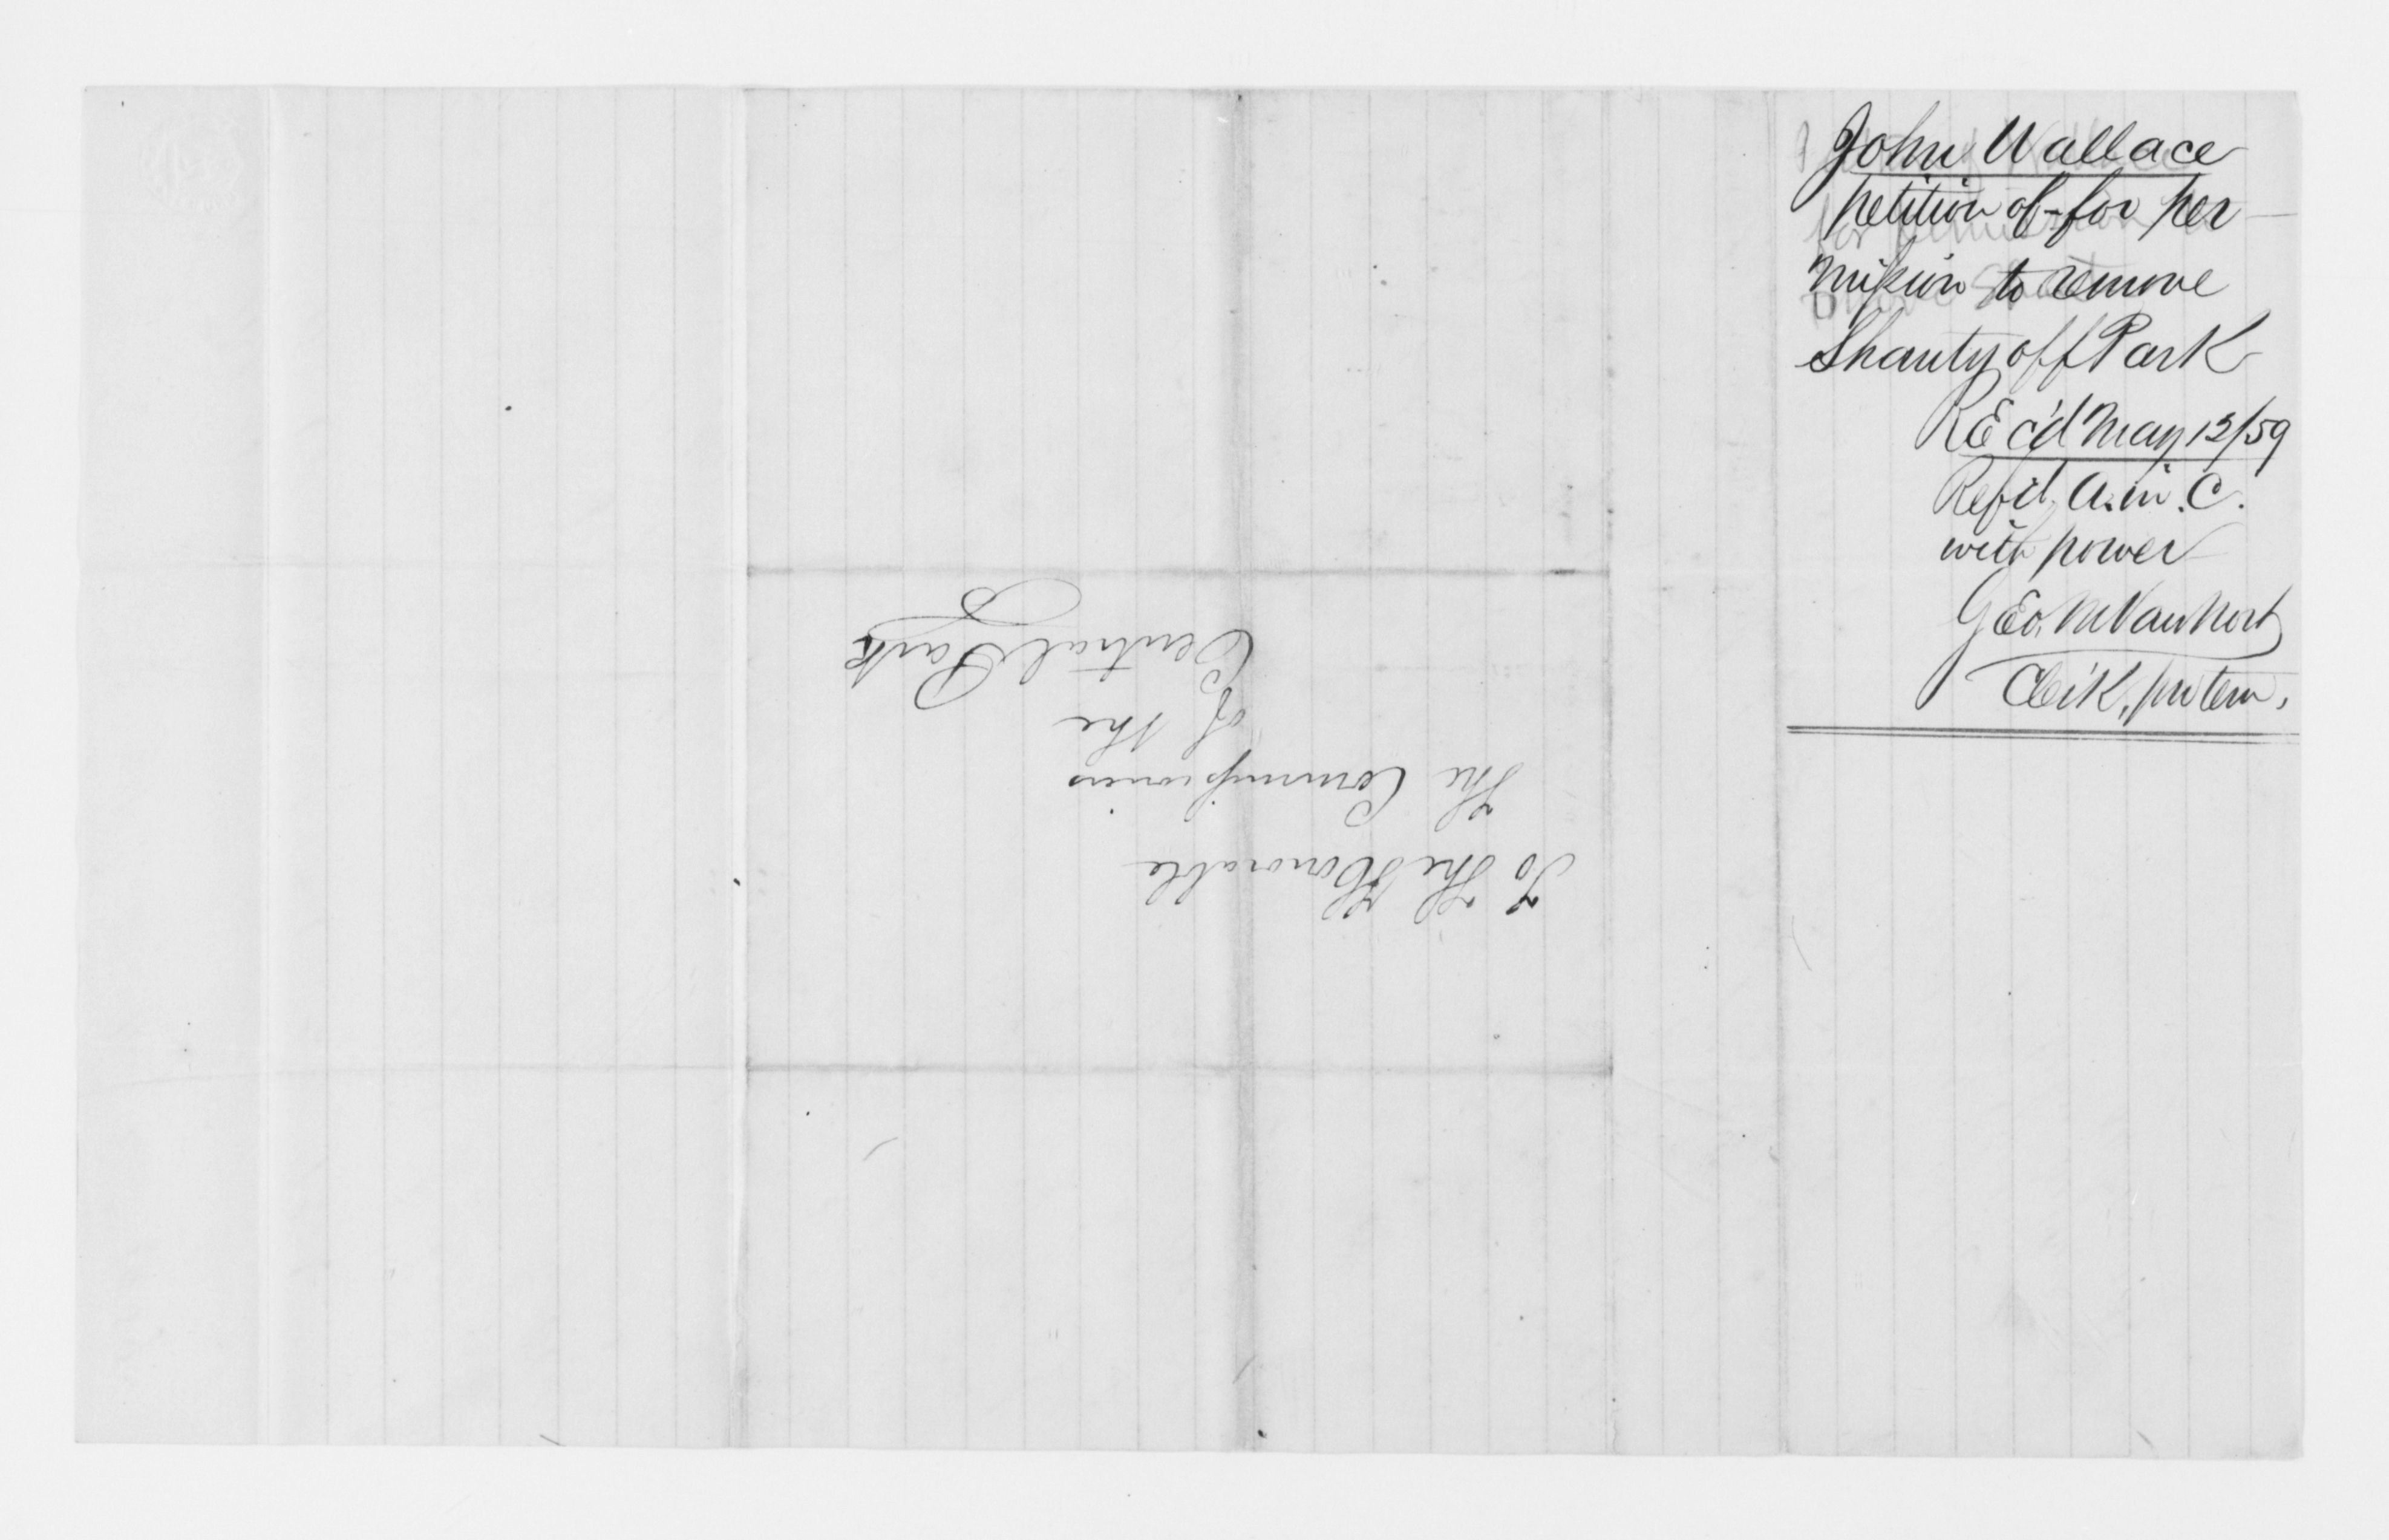 John Wallace
petition of - for per
mission to remove
Shanty off Park
REc'd May 12/59
Ref'd. A. in. C.
with power
GEo. M Van Nort
Cl'k, pro tem.
To The Honorable
The Commissioners
of the
Central Park